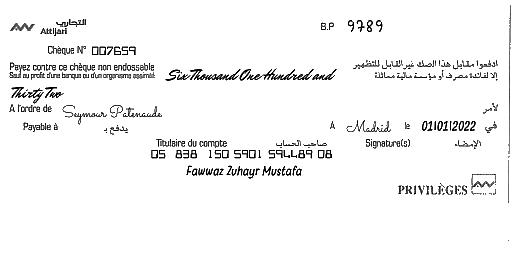 التجاري
Attijari
B.P 9789
Chèque N° 007659
Payez contre ce chèque non endossable
Sauf au profit d'une banque ou d'un organisme assimilé
Six Thousand One Hundred and
ادفعوا مقابل هذا الصك غير القابل للتظهير
إلا لفائدة مصرف أو مؤسسة مالية مماثلة
Thirty Two
A l'ordre de Seymour Patenaude
لأمر
Payable à يدفع بـ
A Madrid le 01/01/2022 في
Titulaire du compte صاحب الحساب
Signature(s) الإمضاء
05 838 150 5901 594489 08
Fawwaz Zuhayr Mustafa
PRIVILÈGES